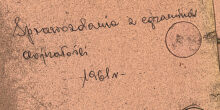 Sprawozdania z egzaminu
dojrzałości
1961 r.